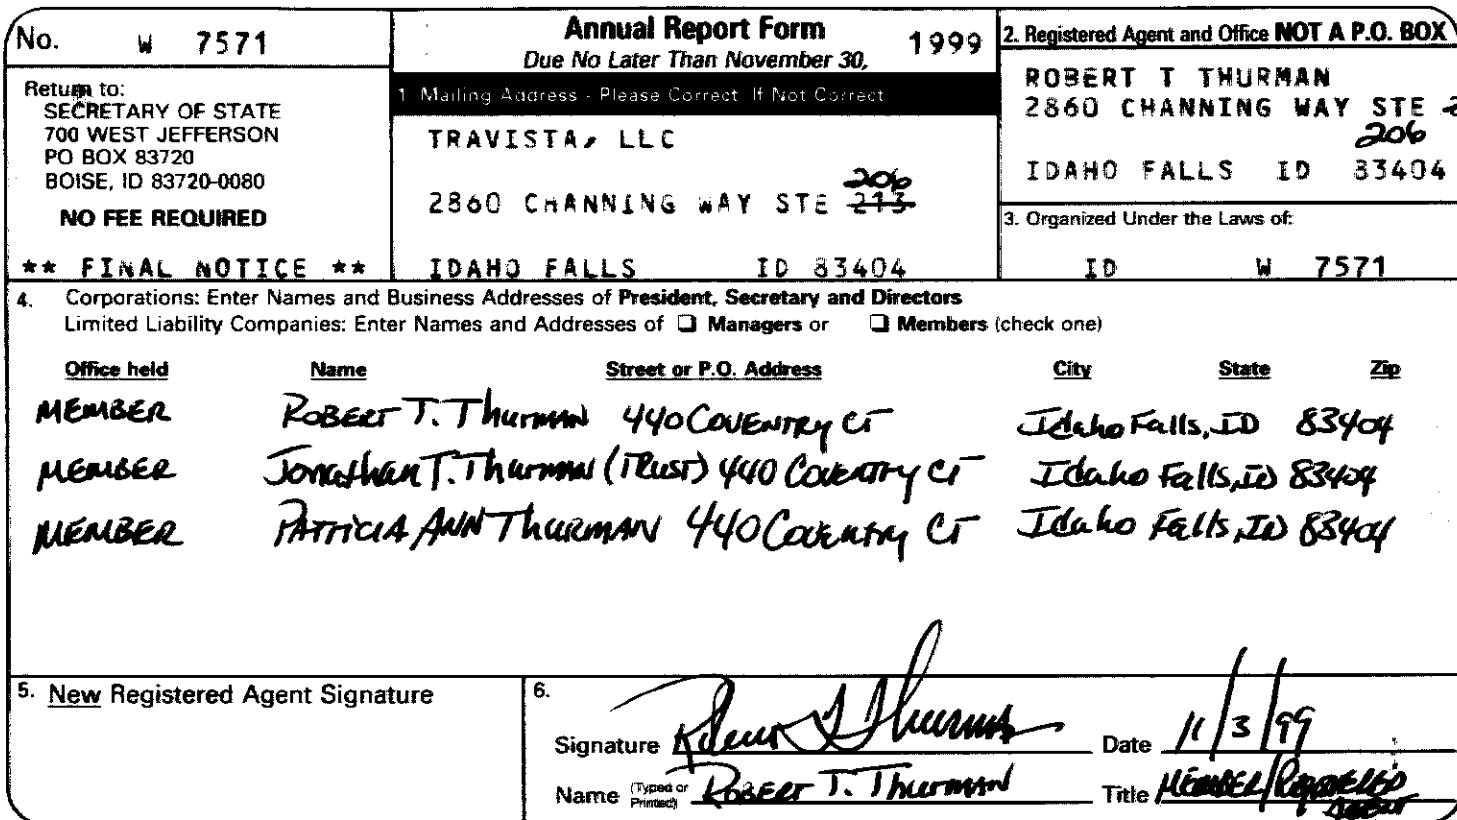 No. W 7571
Annual Report Form 1999
Due No Later Than November 30,
Return to:
SECRETARY OF STATE
700 WEST JEFFERSON
PO BOX 83720
BOISE, ID 83720-0080
NO FEE REQUIRED
** FINAL NOTICE **
1. Mailing Address - Please Correct If Not Correct
TRAVISTA, LLC
206
2860 CHANNING WAY STE 213
IDAHO FALLS ID 83404
2. Registered Agent and Office NOT A P.O. BOX
ROBERT T THURMAN
2860 CHANNING WAY STE
206
IDAHO FALLS ID 83404
3. Organized Under the Laws of:
ID W 7571
4. Corporations: Enter Names and Business Addresses of President, Secretary and Directors
Limited Liability Companies: Enter Names and Addresses of ❑ Managers or ❑ Members (check one)
Office held Name Street or P.O. Address City State Zip
MEMBER ROBERT T. Thurman 440 COVENTRY CT Idaho Falls, ID 83404
MEMBER Jonathan T. Thurman (TRUST) 440 COVENTRY CT Idaho Falls, ID 83404
MEMBER PATRICIA ANN THURMAN 440 Coventry CT Idaho Falls, ID 83404
5. New Registered Agent Signature
6.
Signature Robert T Thurman Date 11/3/99
Name (Typed or Printed) ROBERT T. Thurman Title MEMBER/REGISTERED
AGENT